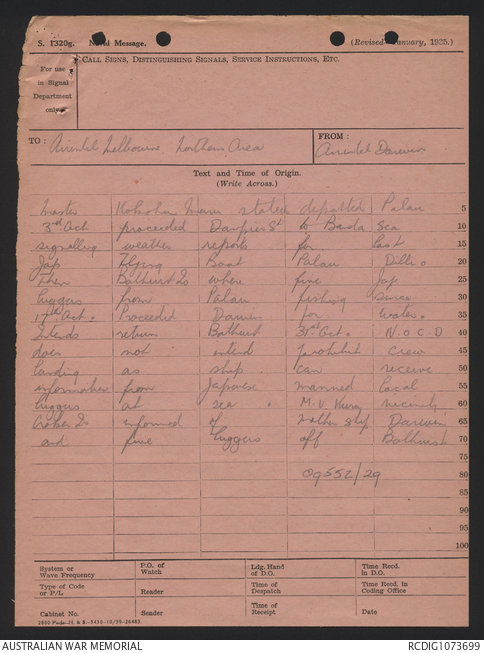 S. 1320g. Naval Message. (Revised January, 1935.)
For use in Signal Department only
CALL SIGNS, DISTINGUISHING SIGNALS, SERVICE INSTRUCTIONS, ETC.
TO: Airintel Melbourne. Northern Area
FROM: Airintel Darwin
Text and Time of Origin.
(Write Across.)
Master Maru states departed Palau 5
3rd Oct proceeded Dampier St to Banda Sea 10
signalling weather reports for last 15
Jap Flying Boat Palau Dilli. 20
Then Bathurst Is where five Jap 25
luggers from Palau fishing since 30
17th Oct. Proceeded Darwin for water. 35
Intends return Bathurst 31st Oct. N.O.C.D 40
does not intend prohibit crew 45
landing as ship can receive 50
information from Japanese manned local 55
luggers at sea. M.V. vicinity 60
Croker Is informed of mother ship Darwin 65
and five luggers off Bathurst 70
75
0952Z/29 80
85
90
95
100
System or Wave Frequency
P.O. of Watch
Ldg. Hand of D.O.
Time Recd. in D.O.
Type of Code or P/L
Reader
Time of Despatch
Time Recd. in Coding Office
Cabinet No.
Sender
Time of Receipt
Date
AUSTRALIAN WAR MEMORIAL
RCDIG1073699